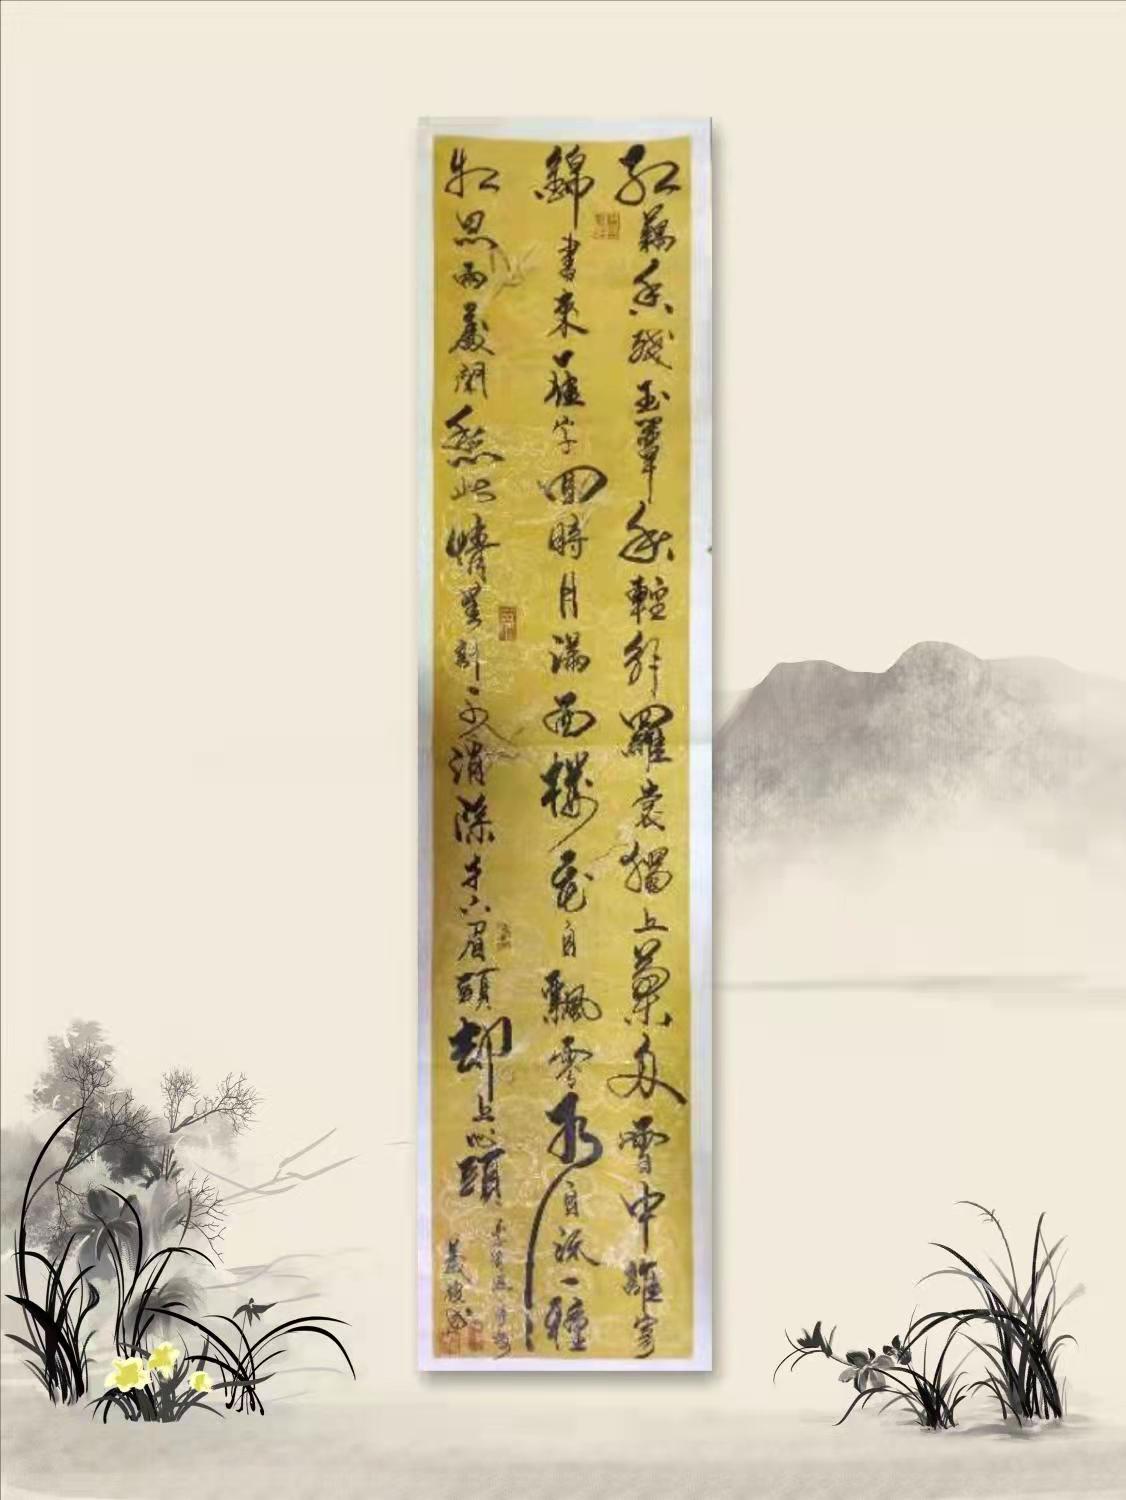 紅藕香殘玉簟秋輕解羅裳獨上蘭舟雲中誰寄
錦書來雁字回時月滿西樓花自飄零水自流一種
相思兩處閒愁此情無計可消除才下眉頭却上心頭